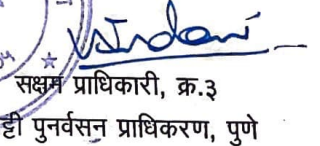 सक्षम प्राधिकारी, क्र.३
ट्टी पुनर्वसन प्राधिकरण, पुणे